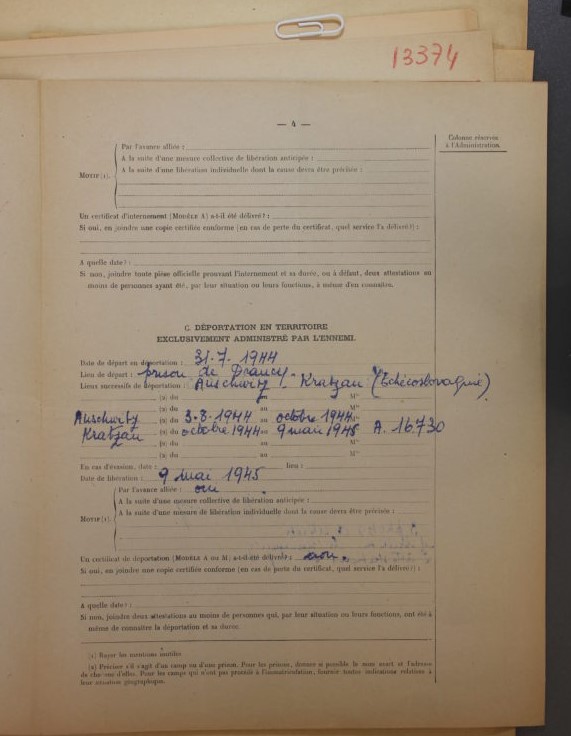 13374
— 4 —
Colonne réservée
à l'Administration.
Par l'avance alliée :
A la suite d'une mesure collective de libération anticipée :
A la suite d'une libération individuelle dont la cause devra être précisée :
MOTIF (1).
Un certificat d'internement (MODÈLE A) a-t-il été délivré? :
Si oui, en joindre une copie certifiée conforme (en cas de perte du certificat, quel service l'a délivré?) :
A quelle date? :
Si non, joindre toute pièce officielle prouvant l'internement et sa durée, ou à défaut, deux attestations au
moins de personnes ayant été, par leur situation ou leurs fonctions, à même d'en connaître.
C. DÉPORTATION EN TERRITOIRE
EXCLUSIVEMENT ADMINISTRÉ PAR L'ENNEMI.
Date de départ en déportation : 31-7-1944
Lieu de départ : prison de Drancy -
Lieux successifs de déportation : Auschwitz - Kratzau (Tchécoslovaquie)
(2) du au Mle
Auschwitz (2) du 3-8-1944 au octobre 1944 Mle
Kratzau (2) du octobre 1944 au 9 mai 1945 Mle A. 16.730
(2) du au Mle
En cas d'évasion, date : lieu :
Date de libération : 9 mai 1945
Par l'avance alliée : oui
A la suite d'une mesure collective de libération anticipée :
A la suite d'une mesure de libération individuelle dont la cause devra être précisée :
MOTIF (1).
Un certificat de déportation (MODÈLE A ou M) a-t-il été délivré? : non.
Si oui, en joindre une copie certifiée conforme (en cas de perte du certificat, quel service l'a délivré?) :
A quelle date? :
Si non, joindre deux attestations au moins de personnes qui, par leur situation ou leurs fonctions, ont été à
même de connaître la déportation et sa durée.
(1) Rayer les mentions inutiles
(2) Préciser s'il s'agit d'un camp ou d'une prison. Pour les prisons, donner si possible le nom exact et l'adresse
de chacune d'elles. Pour les camps qui n'ont pas procédé à l'immatriculation, fournir toutes indications relatives à
leur situation géographique.